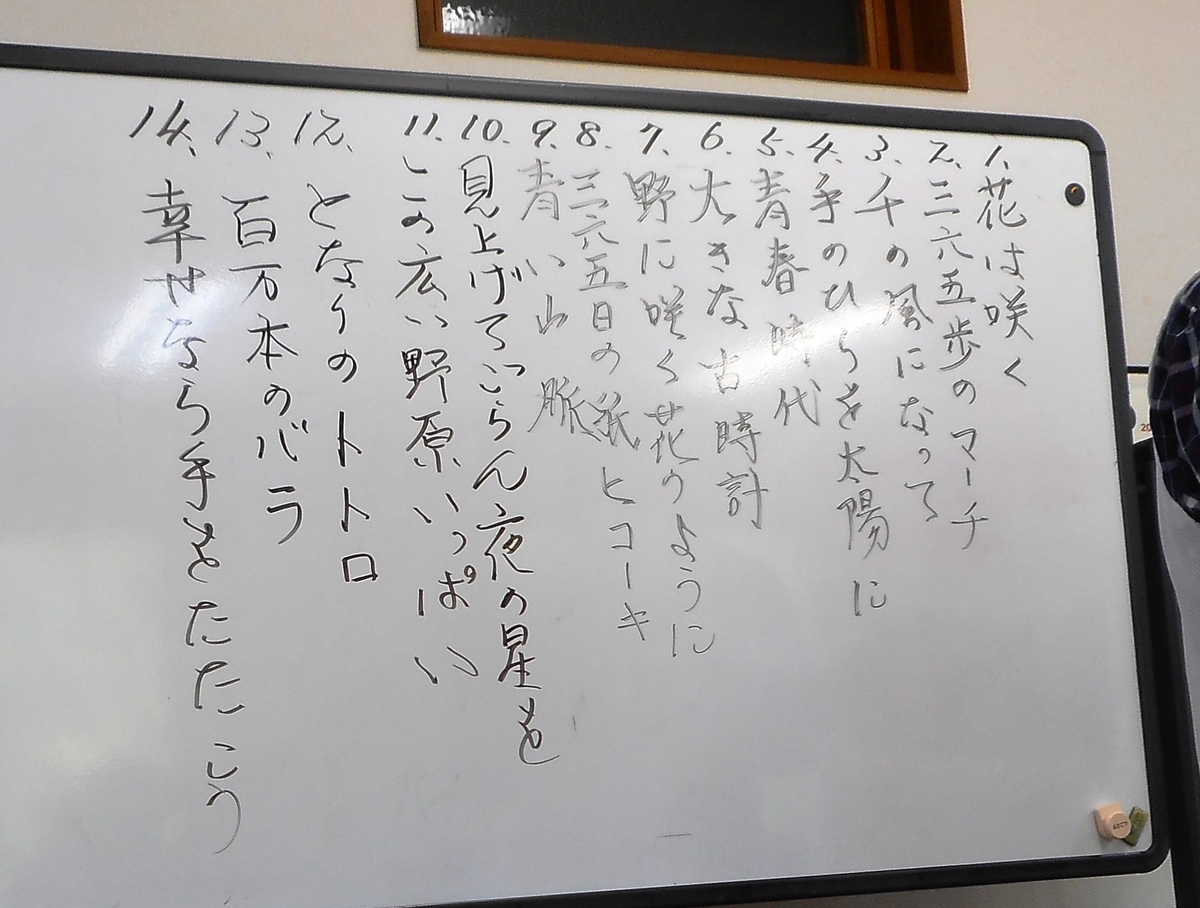 1. 花は咲く
2. 三六五歩のマーチ
3. 千の風になって
4. 手のひらを太陽に
5. 青春時代
6. 大きな古時計
7. 野に咲く花のように
8. 三六五日の紙ヒコーキ
9. 青い山脈
10. 見上げてごらん夜の星を
11. この広い野原いっぱい
12. となりのトトロ
13. 百万本のバラ
14. 幸せなら手をたたこう